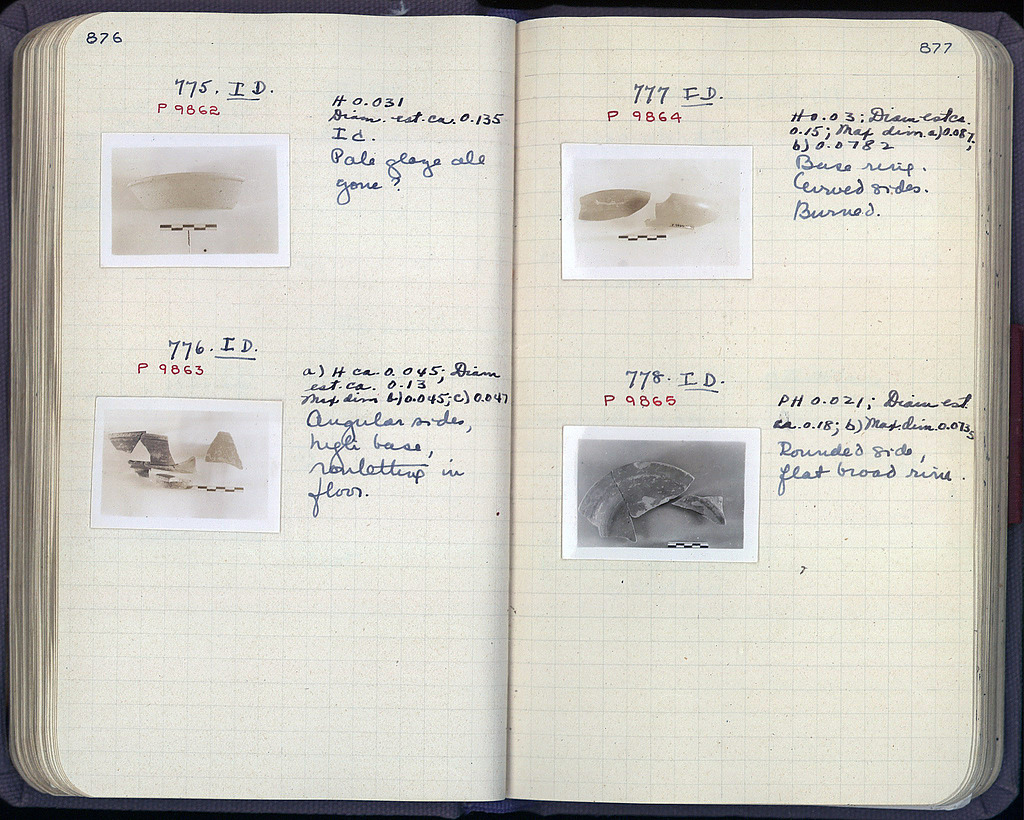 876
775. I D.
P 9862
H 0.031
Diam. est. ca. 0.135
I d.
Pale glaze all
gone?
776. I D.
P 9863
a) H ca. 0.045; Diam
est. ca. 0.13
Max dim b) 0.045; c) 0.047
Angular sides,
high base,
rouletting in
floor.
877
777 I D.
P 9864
H 0.03; Diam est ca.
0.15; Max dim. a) 0.087;
b) 0.0782
Base ring.
Curved sides.
Burned.
778. I D.
P 9865
PH 0.021; Diam est.
ca. 0.18; b) Max dim. 0.0735
Rounded side,
flat broad rim.